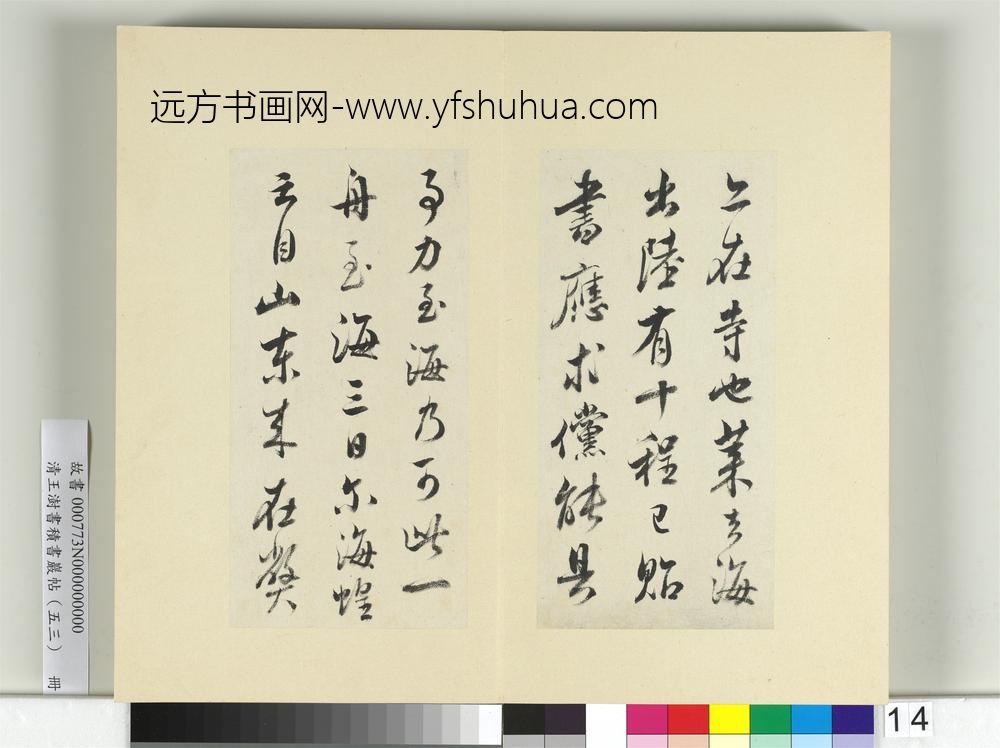 远方书画网-www.yfshuhua.com
上在寺也某去海
出陸有十程已貽
書應求儻能具
事力至海乃可此一
舟至海三日尔海蝗
云自山東来在弊
故書 000773N000000000
清王澍書積書巖帖（五三） 冊
14